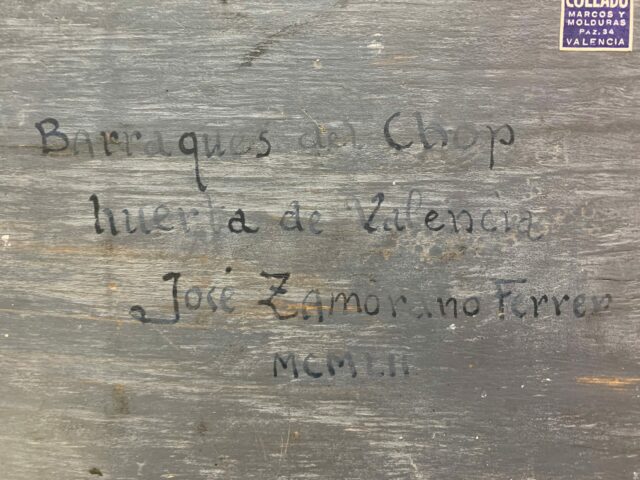 COLLADO
MARCOS Y
MOLDURAS
PAZ, 34
VALENCIA
Barraques del Chop
huerta de Valencia
José Zamorano Ferrer
MCMLII